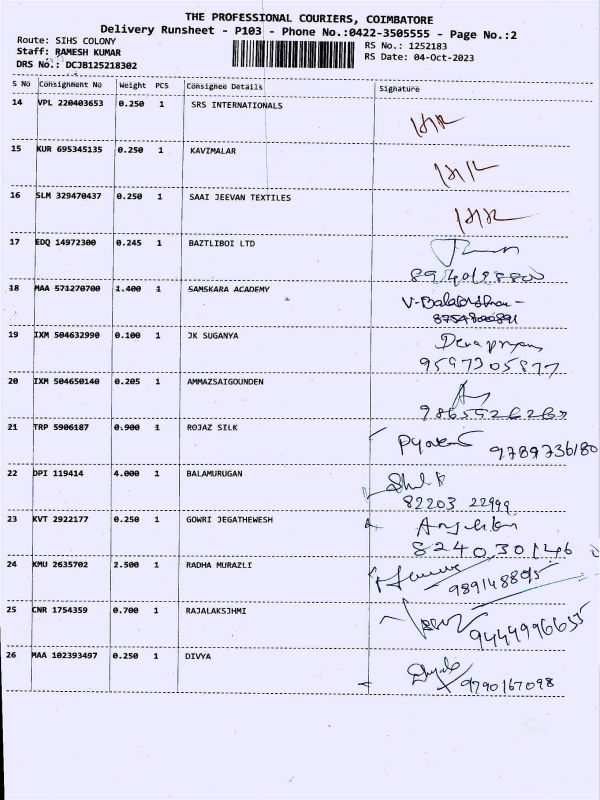 THE PROFESSIONAL COURIERS, COIMBATORE
Delivery Runsheet - P103 - Phone No.:0422-3505555 - Page No.:2
Route: SIHS COLONY
RS No.: 1252183
Staff: RAMESH KUMAR
RS Date: 04-Oct-2023
DRS No.: DCJB125218302
S No Consignment No Weight PCS Consignee Details Signature
14 VPL 220403653 0.250 1 SRS INTERNATIONALS
15 KUR 695345135 0.250 1 KAVIMALAR
16 SLM 329470437 0.250 1 SAAI JEEVAN TEXTILES
17 EDQ 14972300 0.245 1 BAZTLIBOI LTD
18 MAA 571270700 1.400 1 SAMSKARA ACADEMY
19 IXM 504632990 0.100 1 JK SUGANYA
9597305877
20 IXM 504650140 0.205 1 AMMAZSAIGOUNDEN
21 TRP 5906187 0.900 1 ROJAZ SILK
9789736180
22 DPI 119414 4.000 1 BALAMURUGAN
82203 22999
23 KVT 2922177 0.250 1 GOWRI JEGATHEWESH
8240301460
24 KMU 2635702 2.500 1 RADHA MURAZLI
25 CNR 1754359 0.700 1 RAJALAKSJHMI
9444996655
26 MAA 102393497 0.250 1 DIVYA
9790167098